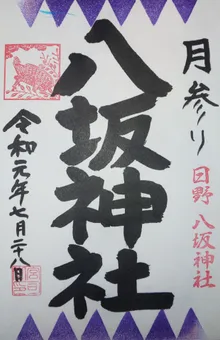 月参り
日野 八坂神社
八坂神社
令和元年七月二八日